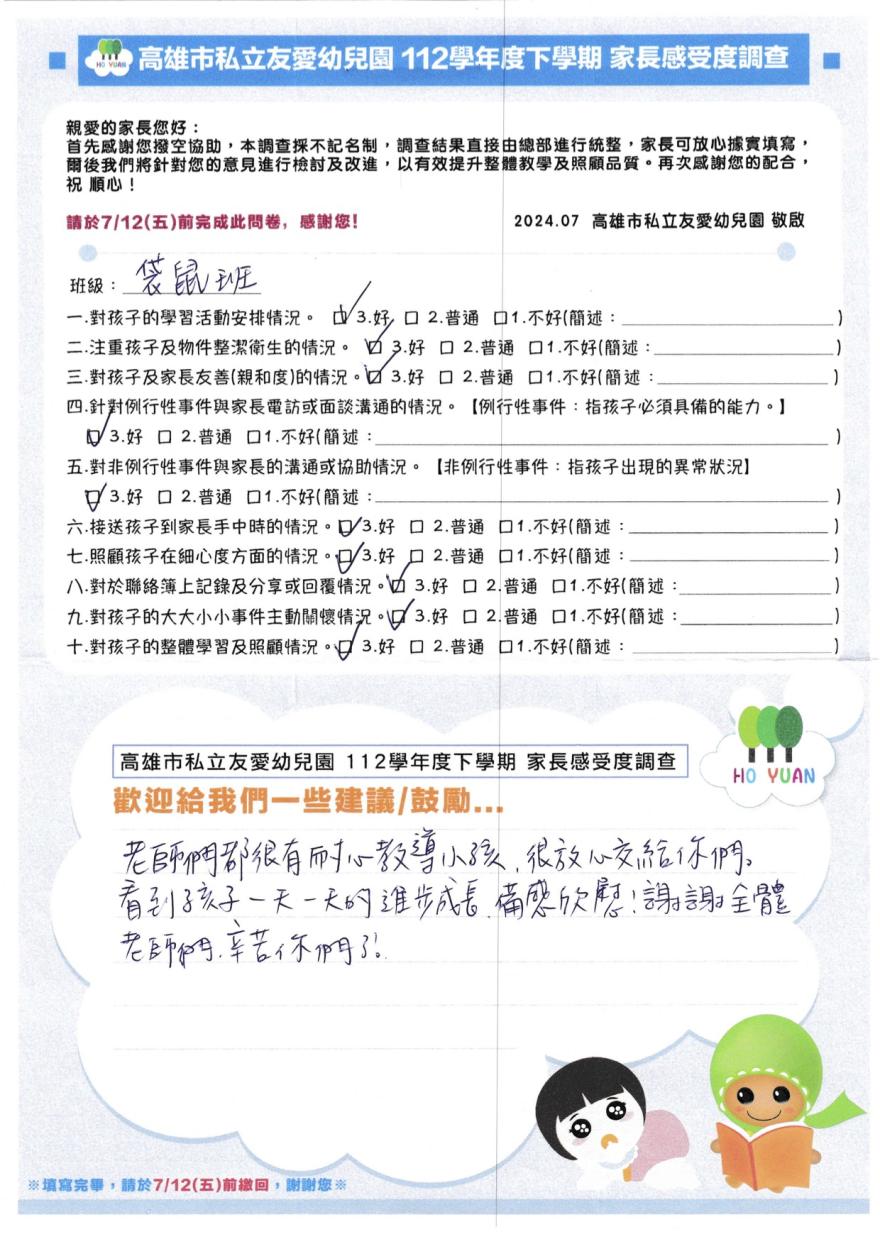 HO YUAN
高雄市私立友愛幼兒園 112學年度下學期 家長感受度調查
親愛的家長您好：
首先感謝您撥空協助，本調查採不記名制，調查結果直接由總部進行統整，家長可放心據實填寫，
爾後我們將針對您的意見進行檢討及改進，以有效提升整體教學及照顧品質。再次感謝您的配合，
祝 順心！
請於7/12(五)前完成此問卷，感謝您! 2024.07 高雄市私立友愛幼兒園 敬啟
班級：袋鼠班
一.對孩子的學習活動安排情況。 ☑ 3.好 □ 2.普通 □1.不好(簡述：____)
二.注重孩子及物件整潔衛生的情況。 ☑ 3.好 □ 2.普通 □1.不好(簡述：____)
三.對孩子及家長友善(親和度)的情況。☑ 3.好 □ 2.普通 □1.不好(簡述：____)
四.針對例行性事件與家長電訪或面談溝通的情況。【例行性事件：指孩子必須具備的能力。】
☑ 3.好 □ 2.普通 □1.不好(簡述：____)
五.對非例行性事件與家長的溝通或協助情況。【非例行性事件：指孩子出現的異常狀況】
☑ 3.好 □ 2.普通 □1.不好(簡述：____)
六.接送孩子到家長手中時的情況。☑ 3.好 □ 2.普通 □1.不好(簡述：____)
七.照顧孩子在細心度方面的情況。☑ 3.好 □ 2.普通 □1.不好(簡述：____)
八.對於聯絡簿上記錄及分享或回覆情況。☑ 3.好 □ 2.普通 □1.不好(簡述：____)
九.對孩子的大大小小事件主動關懷情況。☑ 3.好 □ 2.普通 □1.不好(簡述：____)
十.對孩子的整體學習及照顧情況。☑ 3.好 □ 2.普通 □1.不好(簡述：____)
HO YUAN
高雄市私立友愛幼兒園 112學年度下學期 家長感受度調查
歡迎給我們一些建議/鼓勵...
老師們都很有耐心教導小孩,很放心交給你們。
看到孩子一天一天的進步成長,備感欣慰!謝謝全體
老師們,辛苦你們了!
※填寫完畢，請於7/12(五)前繳回，謝謝您※